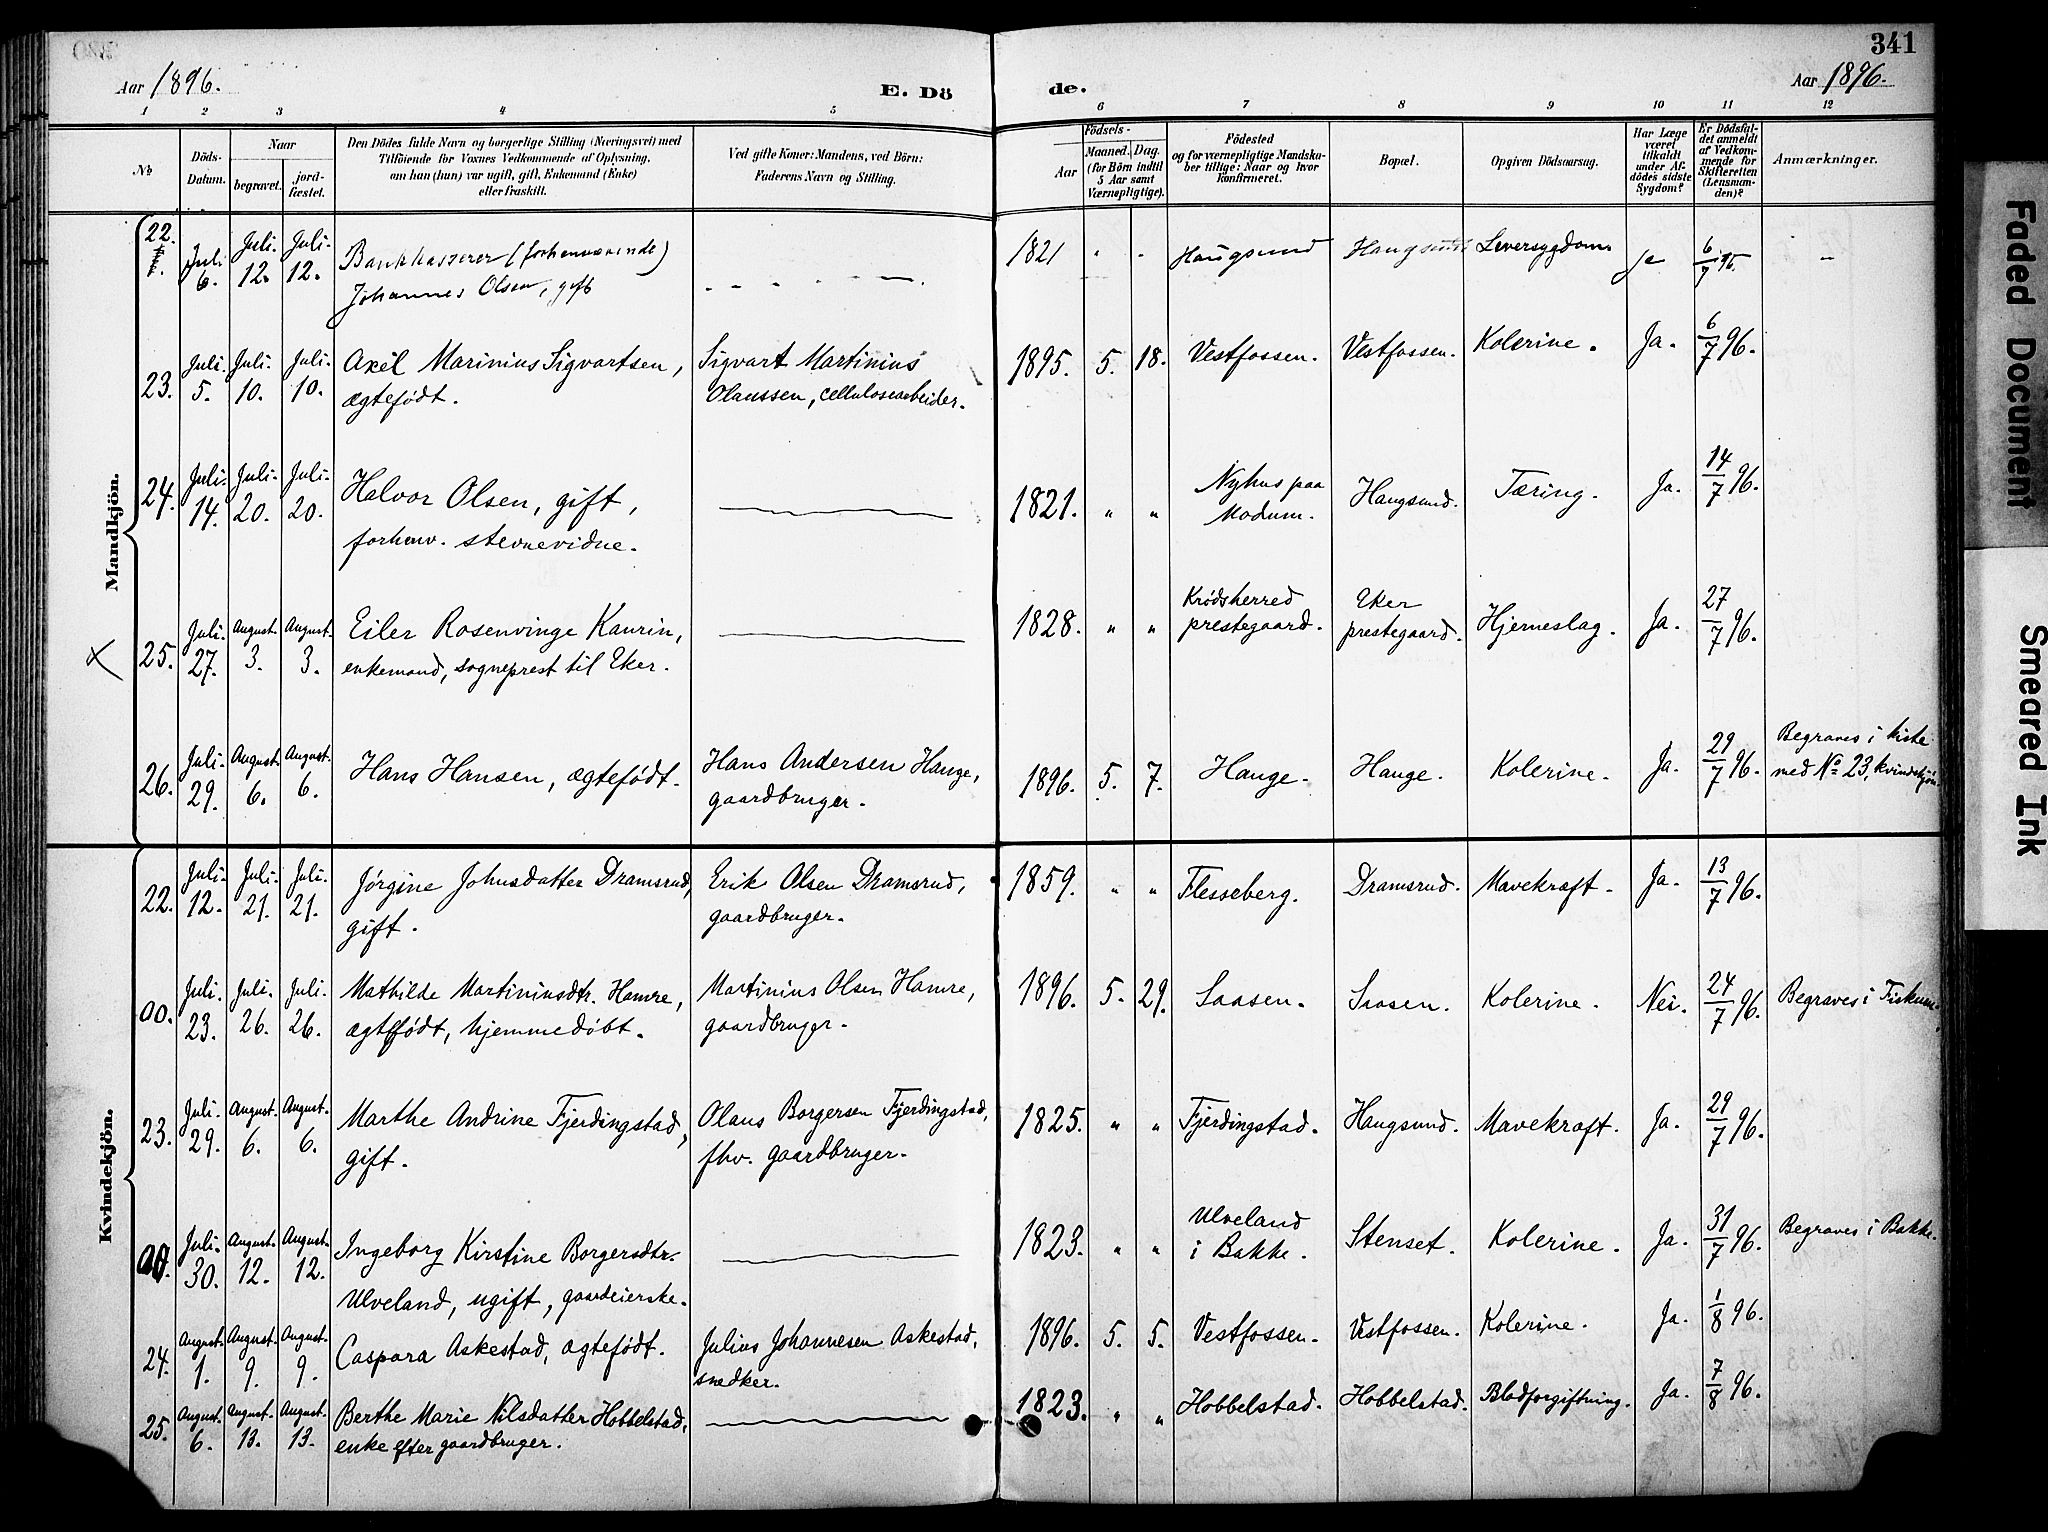 341
Aar 1896.
E. Dö
de.
Aar 1896.
1 2 3 4 5 6 7 8 9 10 11 12
No
Döds-
Datum.
Naar
begravet.
jord-
fæstet.
Den Dödes fulde Navn og borgerlige Stilling (Næringsvei) med
Tilföiende for Voxnes Vedkommende af Oplysning,
om han (hun) var ugift, gift, Enkemand (Enke)
eller fraskilt.
Ved gifte Koner: Mandens, ved Börn:
Faderens Navn og Stilling.
Födsels-
Aar
Maaned.
Dag.
(for Börn indtil
5 Aar samt
Værnepligtige).
Födested
og for værnepligtige Mandska-
ber tillige: Naar og hvor
konfirmeret.
Bopæl.
Opgiven Dödsaarsag.
Har Læge
været
tilkaldt
under Af-
dödes sidste
Sygdom?
Er Dödsfal-
det anmeldt
af Vedkom-
mende for
Skifteretten
(Lensman-
den)?
Anmærkninger.
Mandkjön.
22. Juli 6. Juli. 12. Juli. 12. Bankkasserer (forhenværende)
Johannes Olsen, gift
1821 " " Haugsund Haugsund Leversygdom Ja 6/7 96. –
23. Juli. 5. Juli. 10. Juli. 10. Axel Marinius Sigvartsen,
ægtefødt.
Sigvart Martinius
Olaussen, cellulosearbeider.
1895. 5. 18. Vestfossen. Vestfossen. Kolerine. Ja. 6/7 96.
24. Juli. 14. Juli. 20. Juli. 20. Halvor Olsen, gift,
forhenv. stevnevidne.
1821. " " Nyhus paa
Modum.
Haugsund. Tæring. Ja. 14/7 96.
x 25. Juli. 27. August. 3. August. 3. Eiler Rosenvinge Kaurin,
enkemand, sogneprest til Eker.
1828. " " Krødsherred
prestegaard.
Eker
prestegaard.
Hjerneslag. Ja. 27/7 96.
26. Juli. 29. August. 6. August. 6. Hans Hansen, ægtefødt.
Hans Andersen Hauge,
gaardbruger.
1896. 5. 7. Hauge. Hauge. Kolerine. Ja. 29/7 96.
Begraves i kiste
med No 23, kvindekjön.
Kvindekjön.
22. Juli. 12. Juli. 21. Juli. 21. Jørgine Johnsdatter Dramsrud,
gift.
Erik Olsen Dramsrud,
gaardbruger.
1859. " " Flesseberg. Dramsrud. Mavekræft. Ja. 13/7 96.
00. Juli. 23. Juli. 26. Juli. 26. Mathilde Martiniusdtr. Hamre,
ægtefødt, hjemmedøbt.
Martinius Olsen Hamre,
gaardbruger.
1896. 5. 29. Saasen. Saasen. Kolerine. Nei. 24/7 96. Begraves i Fiskum.
23. Juli. 29. August. 6. August. 6. Marthe Andrine Fjerdingstad,
gift.
Olaus Borgersen Fjerdingstad,
fhv. gaardbruger.
1825. " " Fjerdingstad. Haugsund. Mavekræft. Ja. 29/7 96.
00. Juli. 30. August. 12. August. 12. Ingeborg Kirstine Borgersdtr.
Ulveland, ugift, gaardeierske.
1823. " " Ulveland
i Bakke.
Stenset. Kolerine. Ja. 31/7 96. Begraves i Bakke.
24. August. 1. August. 9. August. 9. Caspara Askestad, ægtefødt.
Julius Johannesen Askestad,
snedker.
1896. 5. 5. Vestfossen. Vestfossen. Kolerine. Ja. 1/8 96.
25. August. 6. August. 13. August. 13. Berthe Marie Nilsdatter Hobbelstad,
enke efter gaardbruger.
1823. " " Hobbelstad. Hobbelstad. Blodforgiftning. Ja. 7/8 96.
Faded Document
Smeared Ink